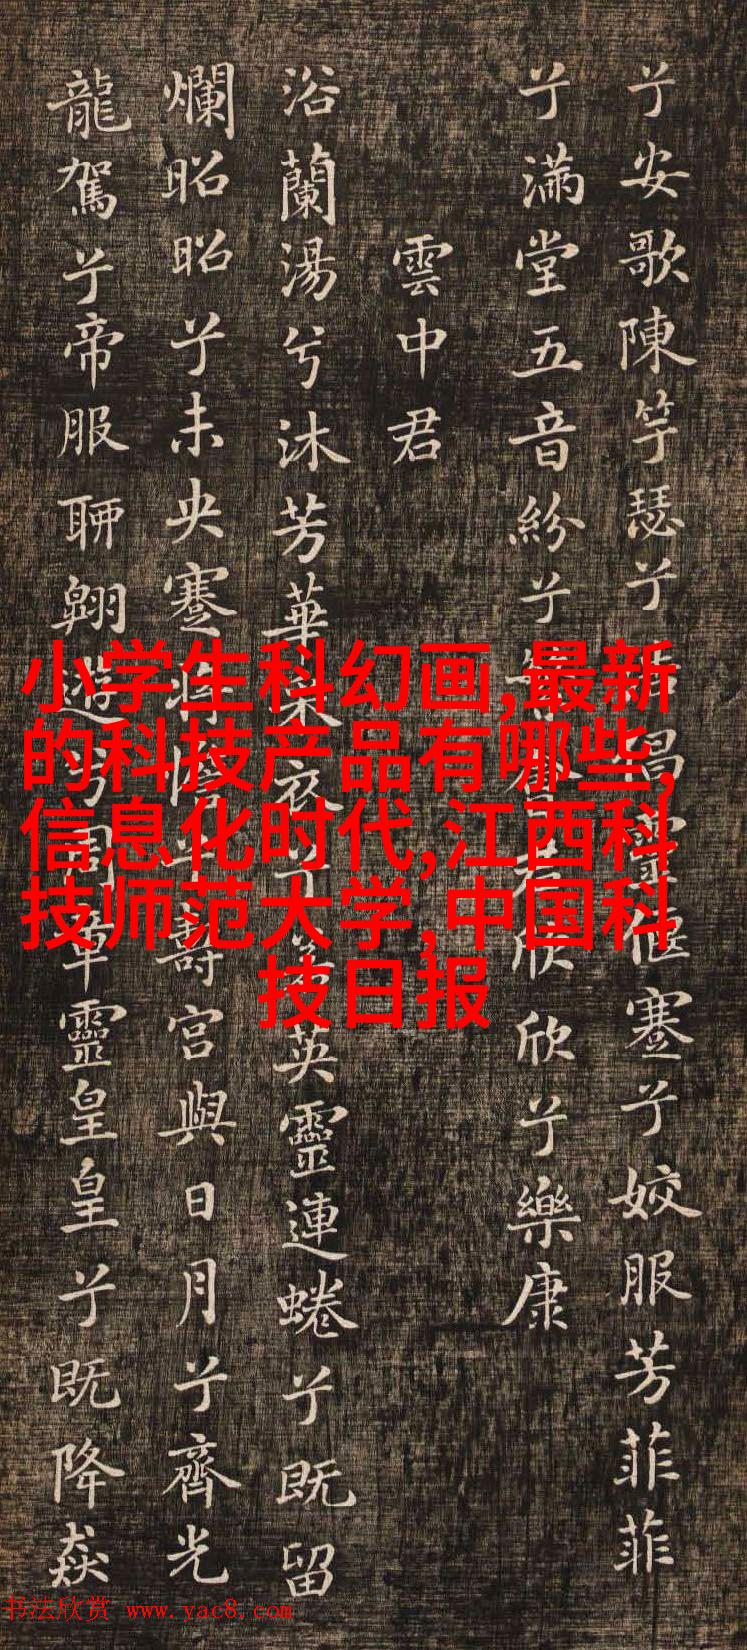 兮安歌陳竽瑟兮浩倡靈偃蹇兮姣服芳菲菲
兮滿堂五音紛兮繁會君欣欣兮樂康
雲中君
浴蘭湯兮沐芳華采衣兮若英靈連蜷兮既留
爛昭昭兮未央蹇將憺兮壽宮與日月兮齊光
龍駕兮帝服聊翱遊兮周章靈皇皇兮既降猋
小学生科幻画,最新
的科技产品有哪些,
信息化时代,江西科
技师范大学,中国科
技日报
书法欣赏 www.yac8.com